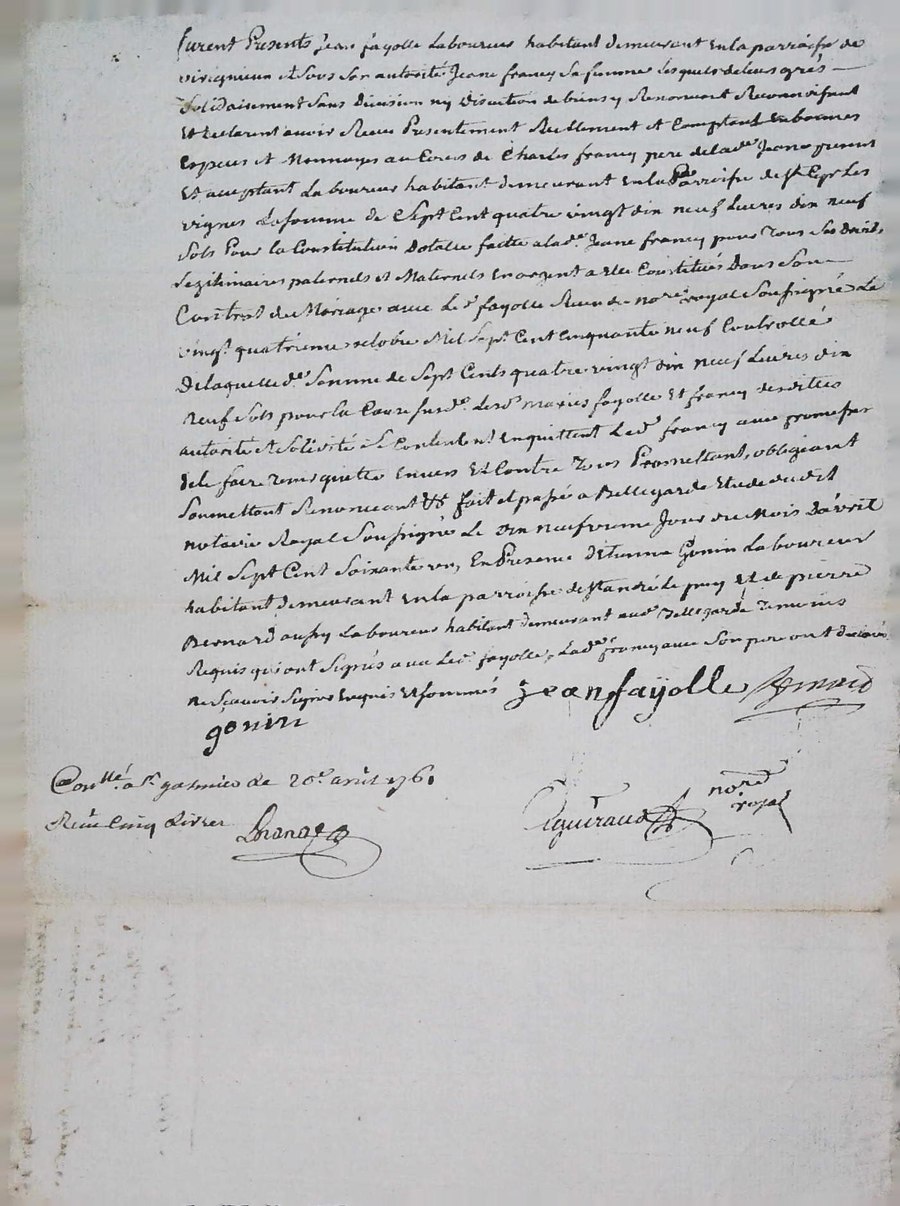 furent Presents Jean fayolle Laboureur habitant demeurant en la parroisse de
virignieu et sous son autorité Jeane francy sa femme lesquels de leurs grés
solidairement sans Division ny discution de biens y Renoncant Reconnoissent
et declarent avoir Receu Presentement Reellement et Comptant en bonnes
Especes et Monnoyes au Cours de Charles francy pere de lad.e Jeane present
Et aceptant Laboureur habitant demeurant en la Parroisse de st Cyr Les
vignes La somme de Sept Cent quatre vingt dix neuf Livres dix neuf
sols Pour la Constitution Dotalle faitte a lad.e Jeane francy pour Tous ses Droits
Legitimaires paternels et Maternels en argent a Elle Constitués Dans son
Contrat de Mariage avec Led. fayolle Receu du no.re royal soussigné Le
vingt quatrieme octobre Mil Sept Cent Cinquante neuf Controllé
De laquelle d.e Somme de Sept Cents quatre vingt dix neuf Livres dix
neuf sols pour la Cause susd.e Lesd. mariés fayolle Et francy desdittes
autorité et solidité se Contentent en quittent Led. francy avec promesse
de le faire tenir quitte Envers Et Contre Tous Promettant, obligeant
soumettant Renoncant &a fait et passé a Bellegarde Etude dudit
notaire Royal Soussigné Le Dix neufvieme Jour du Mois D'avril
Mil Sept Cent Soixante un, En Presence d'Etienne Gonin Laboureur
habitant demeurant en la parroisse de st andré Le puy Et de pierre
Bernard aussy Laboureur habitant demeurant aud. Bellegarde Temoins
Requis qui ont signés avec Led. fayolle, Lad.e francy avec son pere ont declarés
ne scavoir signer Enquis et sommés jean fayolle Bernard
gonin
Con.llé a st galmier Le 20.e avril 1761
Reçu Cinq Livres
nore
royal